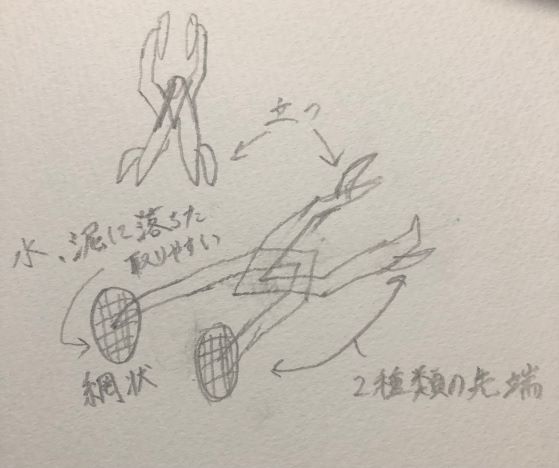 立つ
水、泥に落ちた
取りやすい
網状
2種類の先端